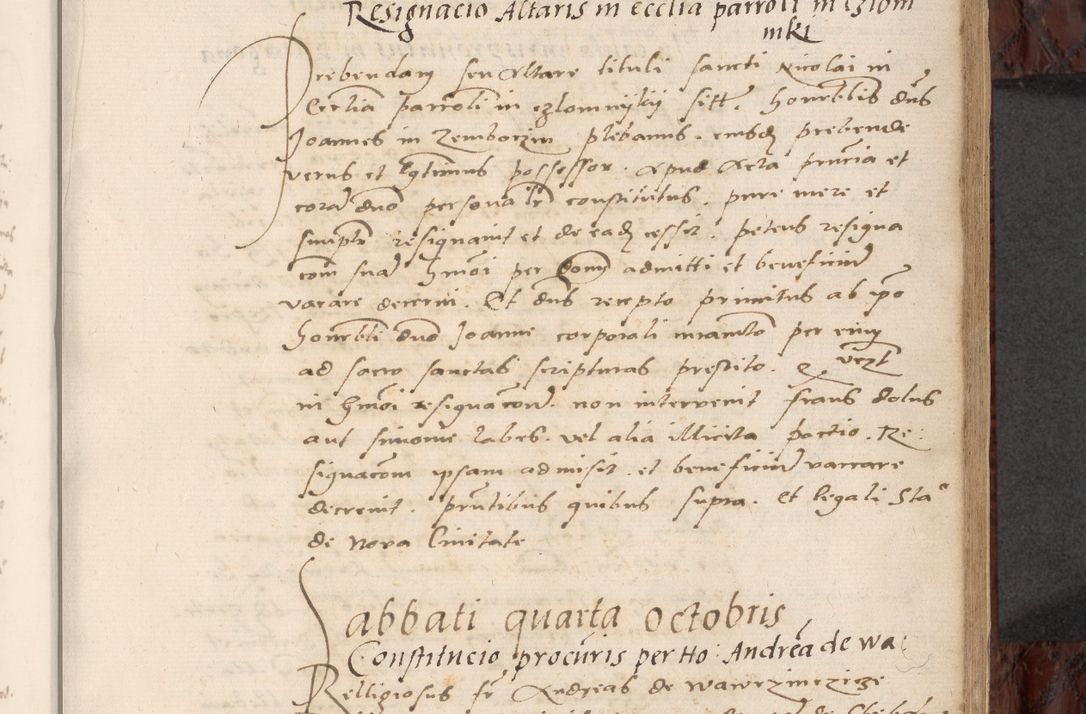 Resignacio Altaris in ecclia parroli in czlom
niki
Prebendam seu Altare tituli sancti Nicolai in
Ecclia parroli in czlomnyky sitt. honorbilis dns
Joannes in Zemborzin plebanus. eiusdem prebende
verus et legtimus possessor. Apud Acta prncia et
coram dno personalr constitutus. pure mere et
simplr resignavit et de eadem cessit. petens resigna
com suam hmoi per domi admitti et beneficium
vacare decerni. Et dns recepto primitus ab ipo
honorbli dno Joanne corporali iuramto per eum
ad sacro sanctas scripturas prestito. Q. vczt
in hmoi resignacone. non intervenit fraus dolus
aut simonie labes. vel alia illicita pactio. Re:
signacom ipsam admisit. et beneficium vaccare
decrevit. prntibus quibus supra. Et legali Sta°
de Nova Civitate
Sabbati quarta octobris
Constitucio procuris per Ho: Andrea de wa
Relligiosus fr Andreas de Wawrzinczicze